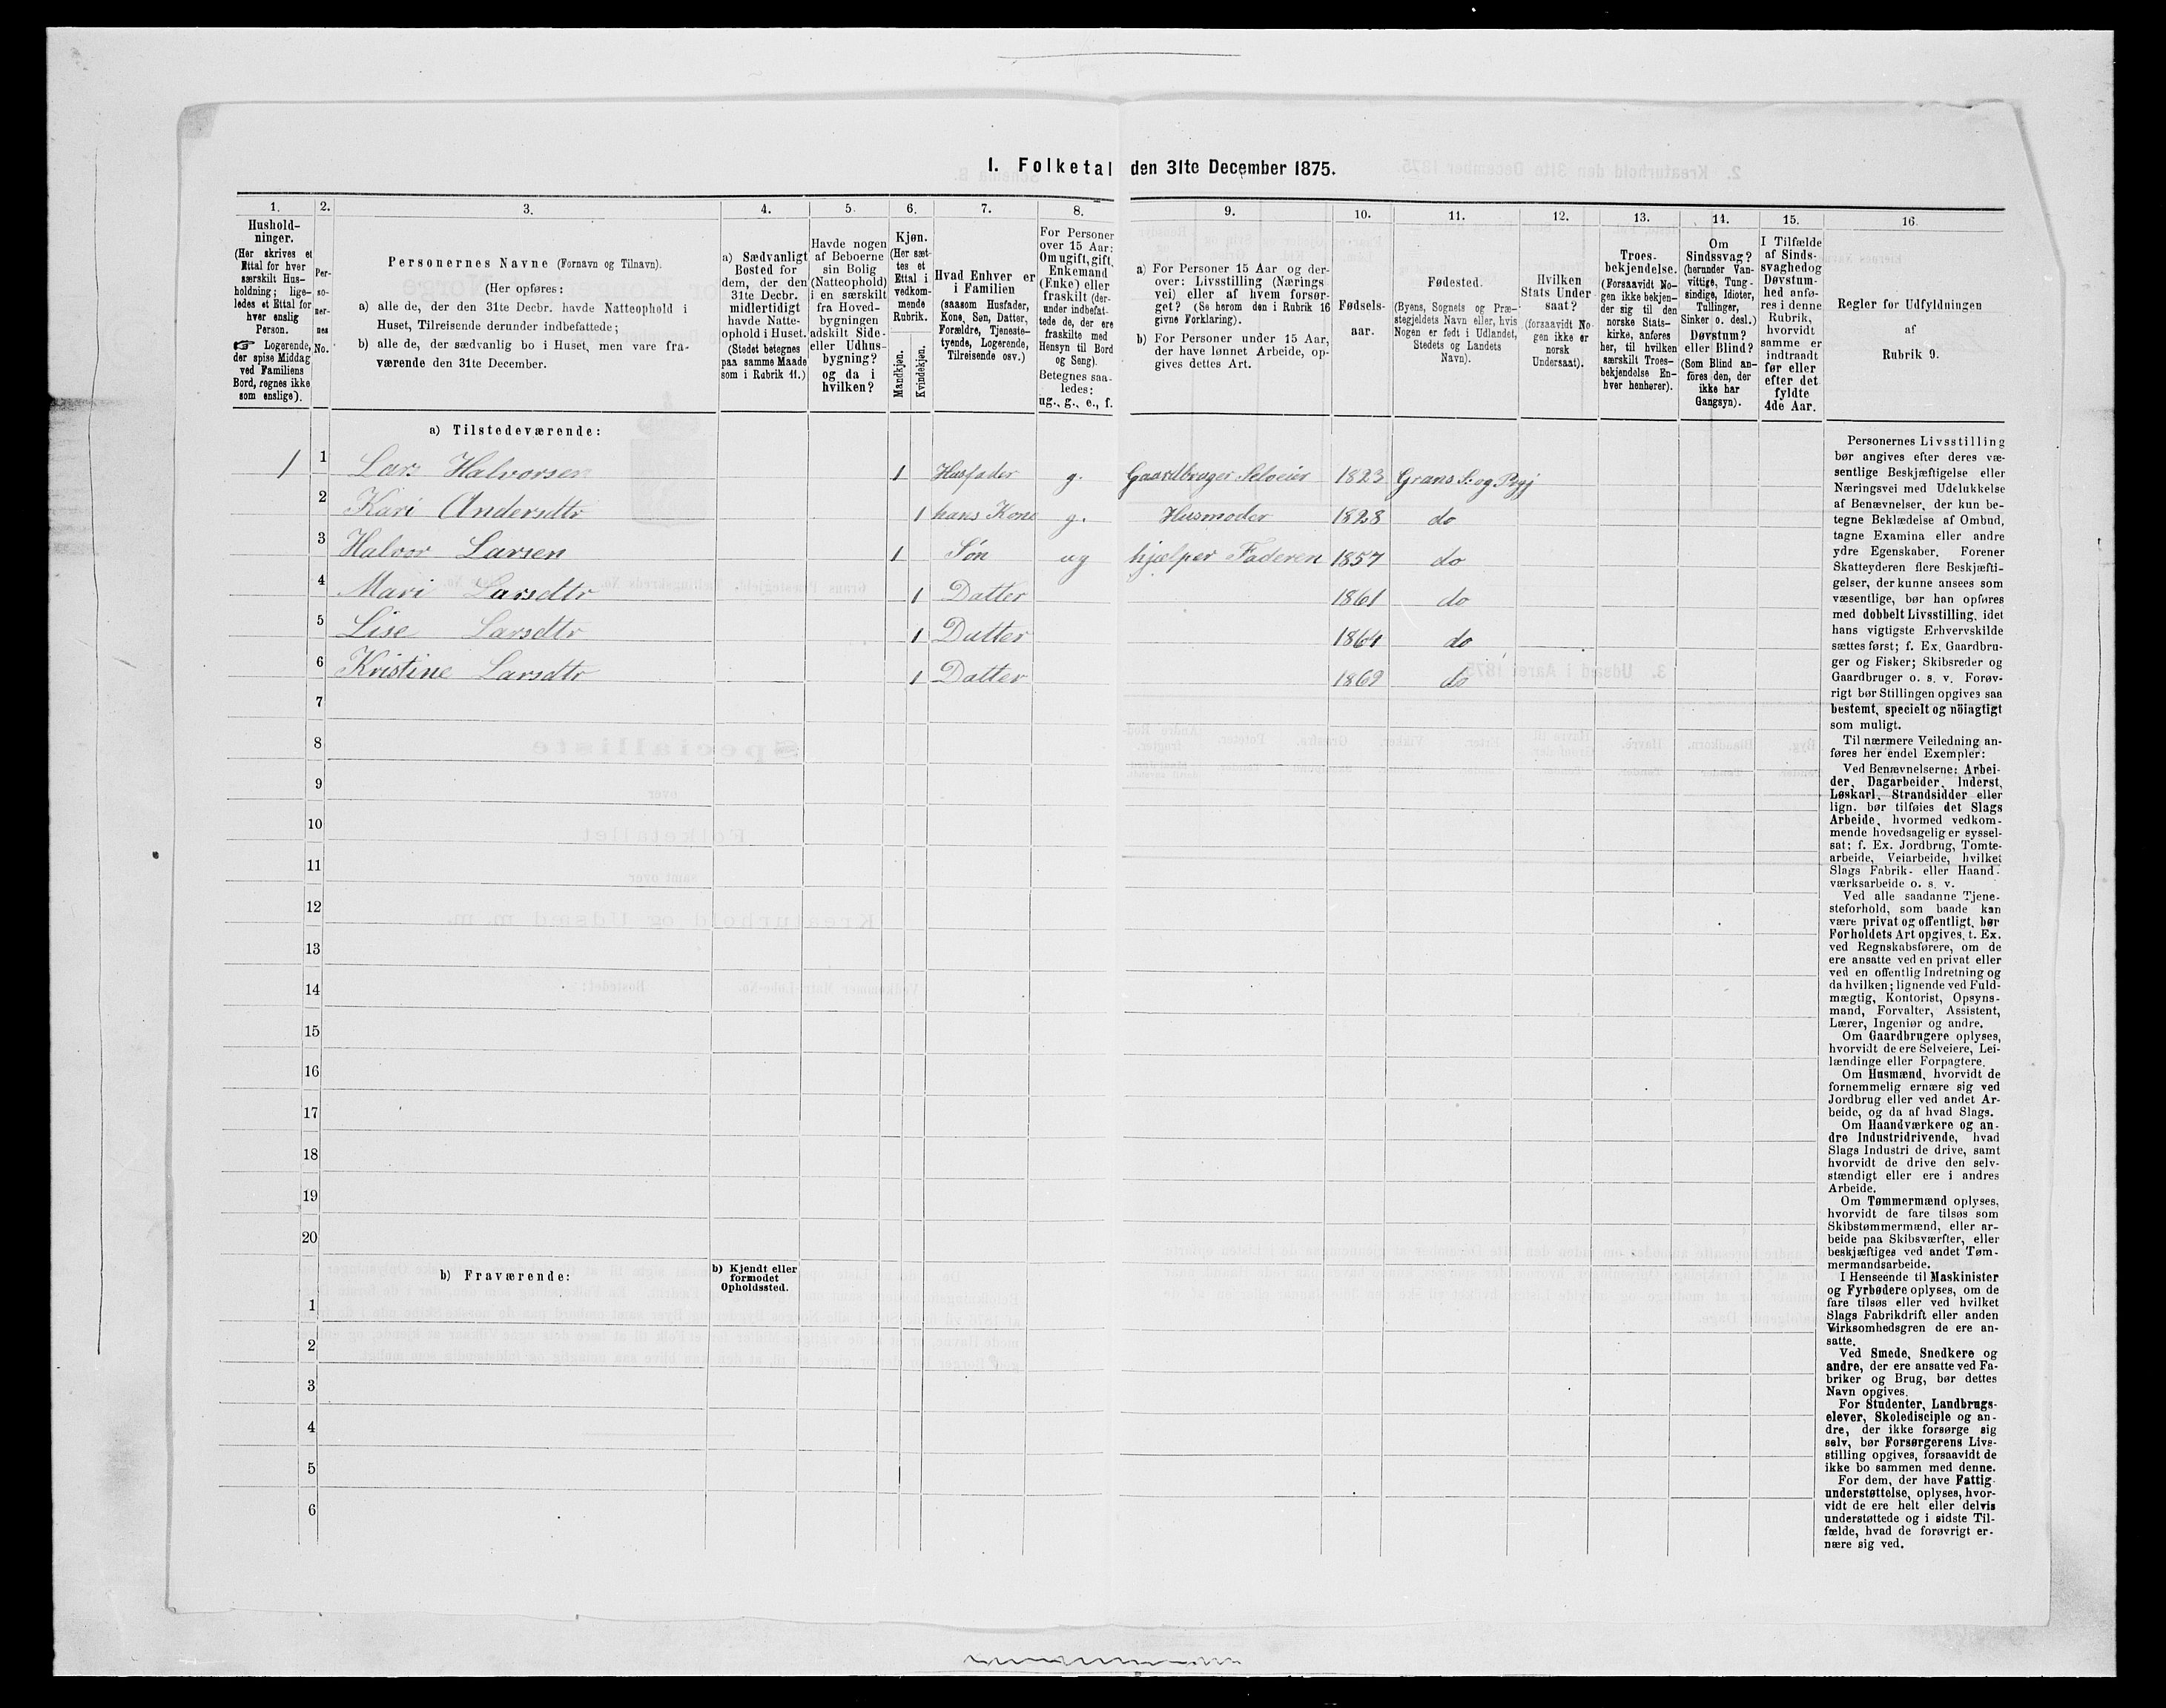 I. Folketal den 31te December 1875.
1.
2.
3.
4.
5.
6.
7.
8.
9.
10.
11.
12.
13.
14.
15.
16.
Hushold-
ninger.
(Her skrives et
Ettal for hver
særskilt Hus-
holdning; lige-
ledes et Ettal for
hver enslig
Person.
☞ Logerende,
der spise Middag
ved Familiens
Bord, regnes ikke
som enslige).
Per-
so-
ner-
nes
No.
Personernes Navne (Fornavn og Tilnavn).
(Her opføres:
a) alle de, der den 31te Decbr. havde Natteophold i
Huset, Tilreisende derunder indbefattede;
b) alle de, der sædvanlig bo i Huset, men vare fra-
værende den 31te December.
a) Sædvanligt
Bosted for
dem, der den
31te Decbr.
midlertidigt
havde Natte-
ophold i Huset.
(Stedet betegnes
paa samme Maade
som i Rubrik 11.)
Havde nogen
af Beboerne
sin Bolig
(Natteophold)
i en særskilt
fra Hoved-
bygningen
adskilt Side-
eller Udhus-
bygning?
og da i
hvilken?
Kjøn.
(Her sæt-
tes et
Ettal i
vedkom-
mende
Rubrik.
Mandkjøn.
Kvindekjøn.
Hvad Enhver er
i Familien
(saasom Husfader,
Kone, Søn, Datter,
Forældre, Tjeneste-
tyende, Logerende,
Tilreisende osv.)
For Personer
over 15 Aar:
Om ugift, gift,
Enkemand
(Enke) eller
fraskilt (der-
under indbefat-
tede de, der ere
fraskilte med
Hensyn til Bord
og Seng).
Betegnes saa-
ledes:
ug., g., e., f.
a) For Personer 15 Aar og der-
over: Livsstilling (Nærings
vei) eller af hvem forsør-
get? (Se herom den i Rubrik 16
givne Forklaring).
b) For Personer under 15 Aar,
der have lønnet Arbeide, op-
gives dettes Art.
Fødsels-
aar.
Fødested.
(Byens, Sognets og Præ-
stegjeldets Navn eller, hvis
Nogen er født i Udlandet,
Stedets og Landets
Navn).
Hvilken
Stats Under
saat?
(forsaavidt No-
gen ikke er
norsk
Undersaat).
Troes-
bekjendelse.
(Forsaavidt No-
gen ikke bekjen-
der sig til den
norske Stats-
kirke, anføres
her, til hvilken
særskilt Troes-
bekjendelse En-
hver henhører).
Om
Sindssvag?
(herunder Van-
vittige, Tung-
sindige, Idioter,
Tullinger,
Sinker o. desl.)
Døvstum?
eller Blind?
(Som Blind an-
föres den, der
ikke har
Gangsyn).
I Tilfælde
af Sinds-
svaghed og
Døvstum-
hed anfø-
res i denne
Rubrik,
hvorvidt
samme er
indtraadt
før eller
efter det
fyldte
4de Aar.
Regler for Udfyldningen
af
Rubrik 9.
a) Tilstedeværende:
1 1 Lars Halvorsen 1 Husfader g. Gaardbruger Selveier 1823 Grans S. og Pgj
2 Kari Andersdtr 1 hans Kone g. Husmoder 1828 do
3 Halvor Larsen 1 Søn ug hjælper Faderen 1857 do
4 Mari Larsdtr 1 Datter 1861 do
5 Lise Larsdtr 1 Datter 1864 do
6 Kristine Larsdtr 1 Datter 1869 do
7
8
9
10
11
12
13
14
15
16
17
18
19
20
b) Fraværende:
b) Kjendt eller
formodet
Opholdssted.
1
2
3
4
5
6
Personernes Livsstilling
bør angives efter deres væ-
sentlige Beskjæftigelse eller
Næringsvei med Udelukkelse
af Benævnelser, der kun be-
tegne Beklædelse af Ombud,
tagne Examina eller andre
ydre Egenskaber. Forener
Skatteyderen flere Beskjæfti-
gelser, der kunne ansees som
væsentlige, bør han opføres
med dobbelt Livsstilling, idet
hans vigtigste Erhvervskilde
sættes først; f. Ex. Gaardbru-
ger og Fisker; Skibsreder og
Gaardbruger o. s. v. Forøv-
rigt bør Stillingen opgives saa
bestemt, specielt og nöiagtigt
som muligt.
Til nærmere Veiledning an-
føres her endel Exempler:
Ved Benævnelserne: Arbei-
der, Dagarbeider, Inderst,
Løskarl, Strandsidder eller
lign. bør tilføies det Slags
Arbeide, hvormed vedkom-
mende hovedsagelig er syssel-
sat; f. Ex. Jordbrug, Tomte-
arbeide, Veiarbeide, hvilket
Slags Fabrik- eller Haand-
værksarbeide o. s. v.
Ved alle saadanne Tjene-
steforhold, som baade kan
være privat og offentligt, bør
Forholdets Art opgives, t. Ex.
ved Regnskabsførere, om de
ere ansatte ved en privat eller
ved en offentlig Indretning og
da hvilken; lignende ved Fuld-
mægtig, Kontorist, Opsyns-
mand, Forvalter, Assistent,
Lærer, Ingeniør og andre.
Om Gaardbrugere oplyses,
hvorvidt de ere Selveiere, Lei-
lændinge eller Forpagtere.
Om Husmænd, hvorvidt de
fornemmelig ernære sig ved
Jordbrug eller ved andet Ar-
beide, og da af hvad Slags.
Om Haandværkere og an-
dre Industridrivende, hvad
Slags Industri de drive, samt
hvorvidt de drive den selv-
stændigt eller ere i andres
Arbeide.
Om Tømmermænd oplyses,
hvorvidt de fare tilsøs som
Skibstømmermænd, eller ar-
beide paa Skibsværfter, eller
beskjæftiges ved andet Tøm-
mermandsarbeide.
I Henseende til Maskinister
og Fyrbødere oplyses, om de
fare tilsøs eller ved hvilket
Slags Fabrikdrift eller anden
Virksomhedsgren de ere an-
satte.
Ved Smede, Snedkere og
andre, der ere ansatte ved Fa-
briker og Brug, bør dettes
Navn opgives.
For Studenter, Landbrugs-
elever, Skoledisciple og an-
dre, der ikke forsørge sig
selv, bør Forsørgerens Livs-
stilling opgives, forsaavidt de
ikke bo sammen med denne.
For dem, der have Fattig-
understøttelse, oplyses, hvor-
vidt de ere helt eller delvis
understøttede og i sidste Til-
fælde, hvad de forøvrigt er-
nære sig ved.